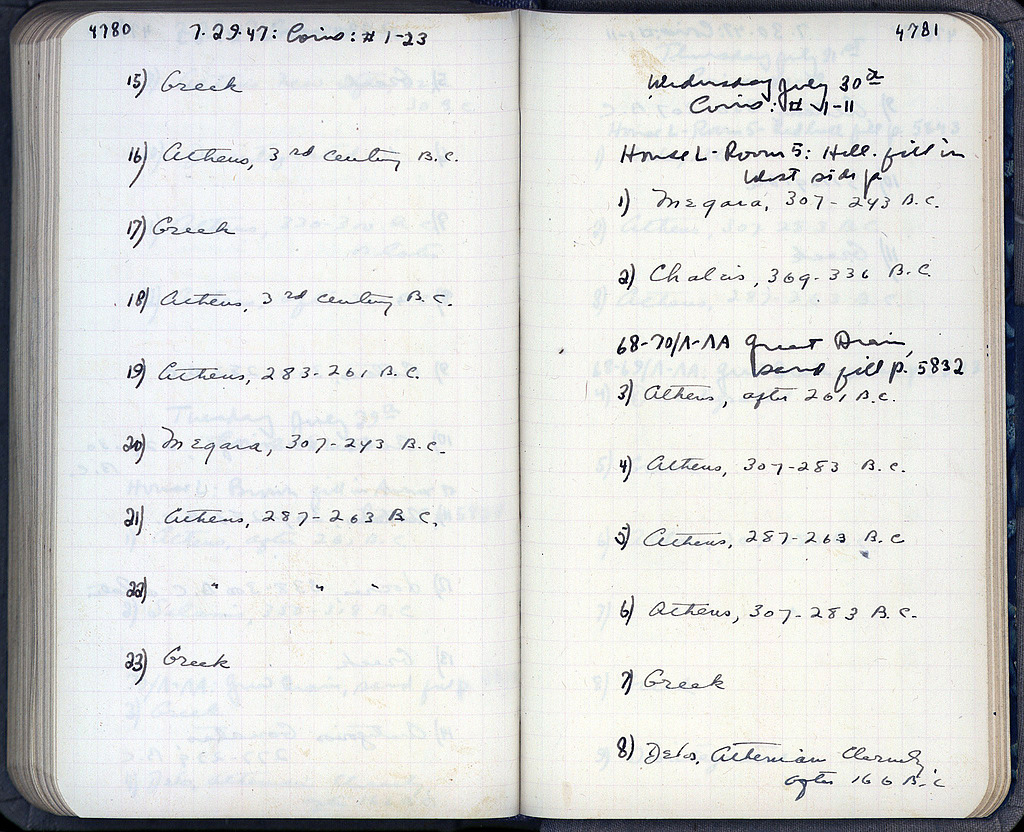 4780
7.29.47: Coins: # 1-23
15) Greek
16) Athens, 3rd century B.C.
17) Greek
18) Athens, 3rd century B.C.
19) Athens, 283-261 B.C.
20) Megara, 307-243 B.C.
21) Athens, 287-263 B.C.
22) " " "
23) Greek
4781
Wednesday July 30th
Coins: # 1-11
House L - Room 5: Hell. fill in
West side p
1) Megara, 307-243 B.C.
2) Chalcis, 369-336 B.C.
68-70/Λ-ΛΛ Great Drain,
sand fill p. 5832
3) Athens, after 261 B.C.
4) Athens, 307-283 B.C.
5) Athens, 287-263 B.C
6) Athens, 307-283 B.C.
7) Greek
8) Delos, Athenian Cleruchy
after 166 B.C